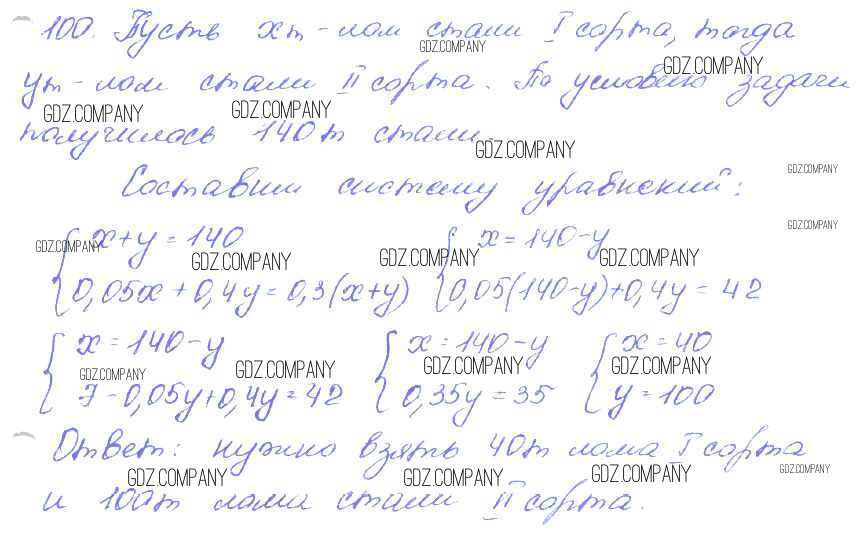 100. Пусть x т - лом стали I сорта, тогда
GDZ.COMPANY
GDZ.COMPANY
y т - лом стали II сорта. По условию задачи
GDZ.COMPANY GDZ.COMPANY
получилось 140 т стали.
GDZ.COMPANY
GDZ.COMPANY
Составим систему уравнений:
GDZ.COMPANY
x+y=140 x=140-y
GDZ.COMPANY GDZ.COMPANY GDZ.COMPANY GDZ.COMPANY
0,05x+0,4y=0,3(x+y) 0,05(140-y)+0,4y=42
x=140-y x=140-y x=40
GDZ.COMPANY GDZ.COMPANY GDZ.COMPANY GDZ.COMPANY
7-0,05y+0,4y=42 0,35y=35 y=100
Ответ: нужно взять 40т лома I сорта
GDZ.COMPANY GDZ.COMPANY GDZ.COMPANY GDZ.COMPANY
и 100т лома стали II сорта.